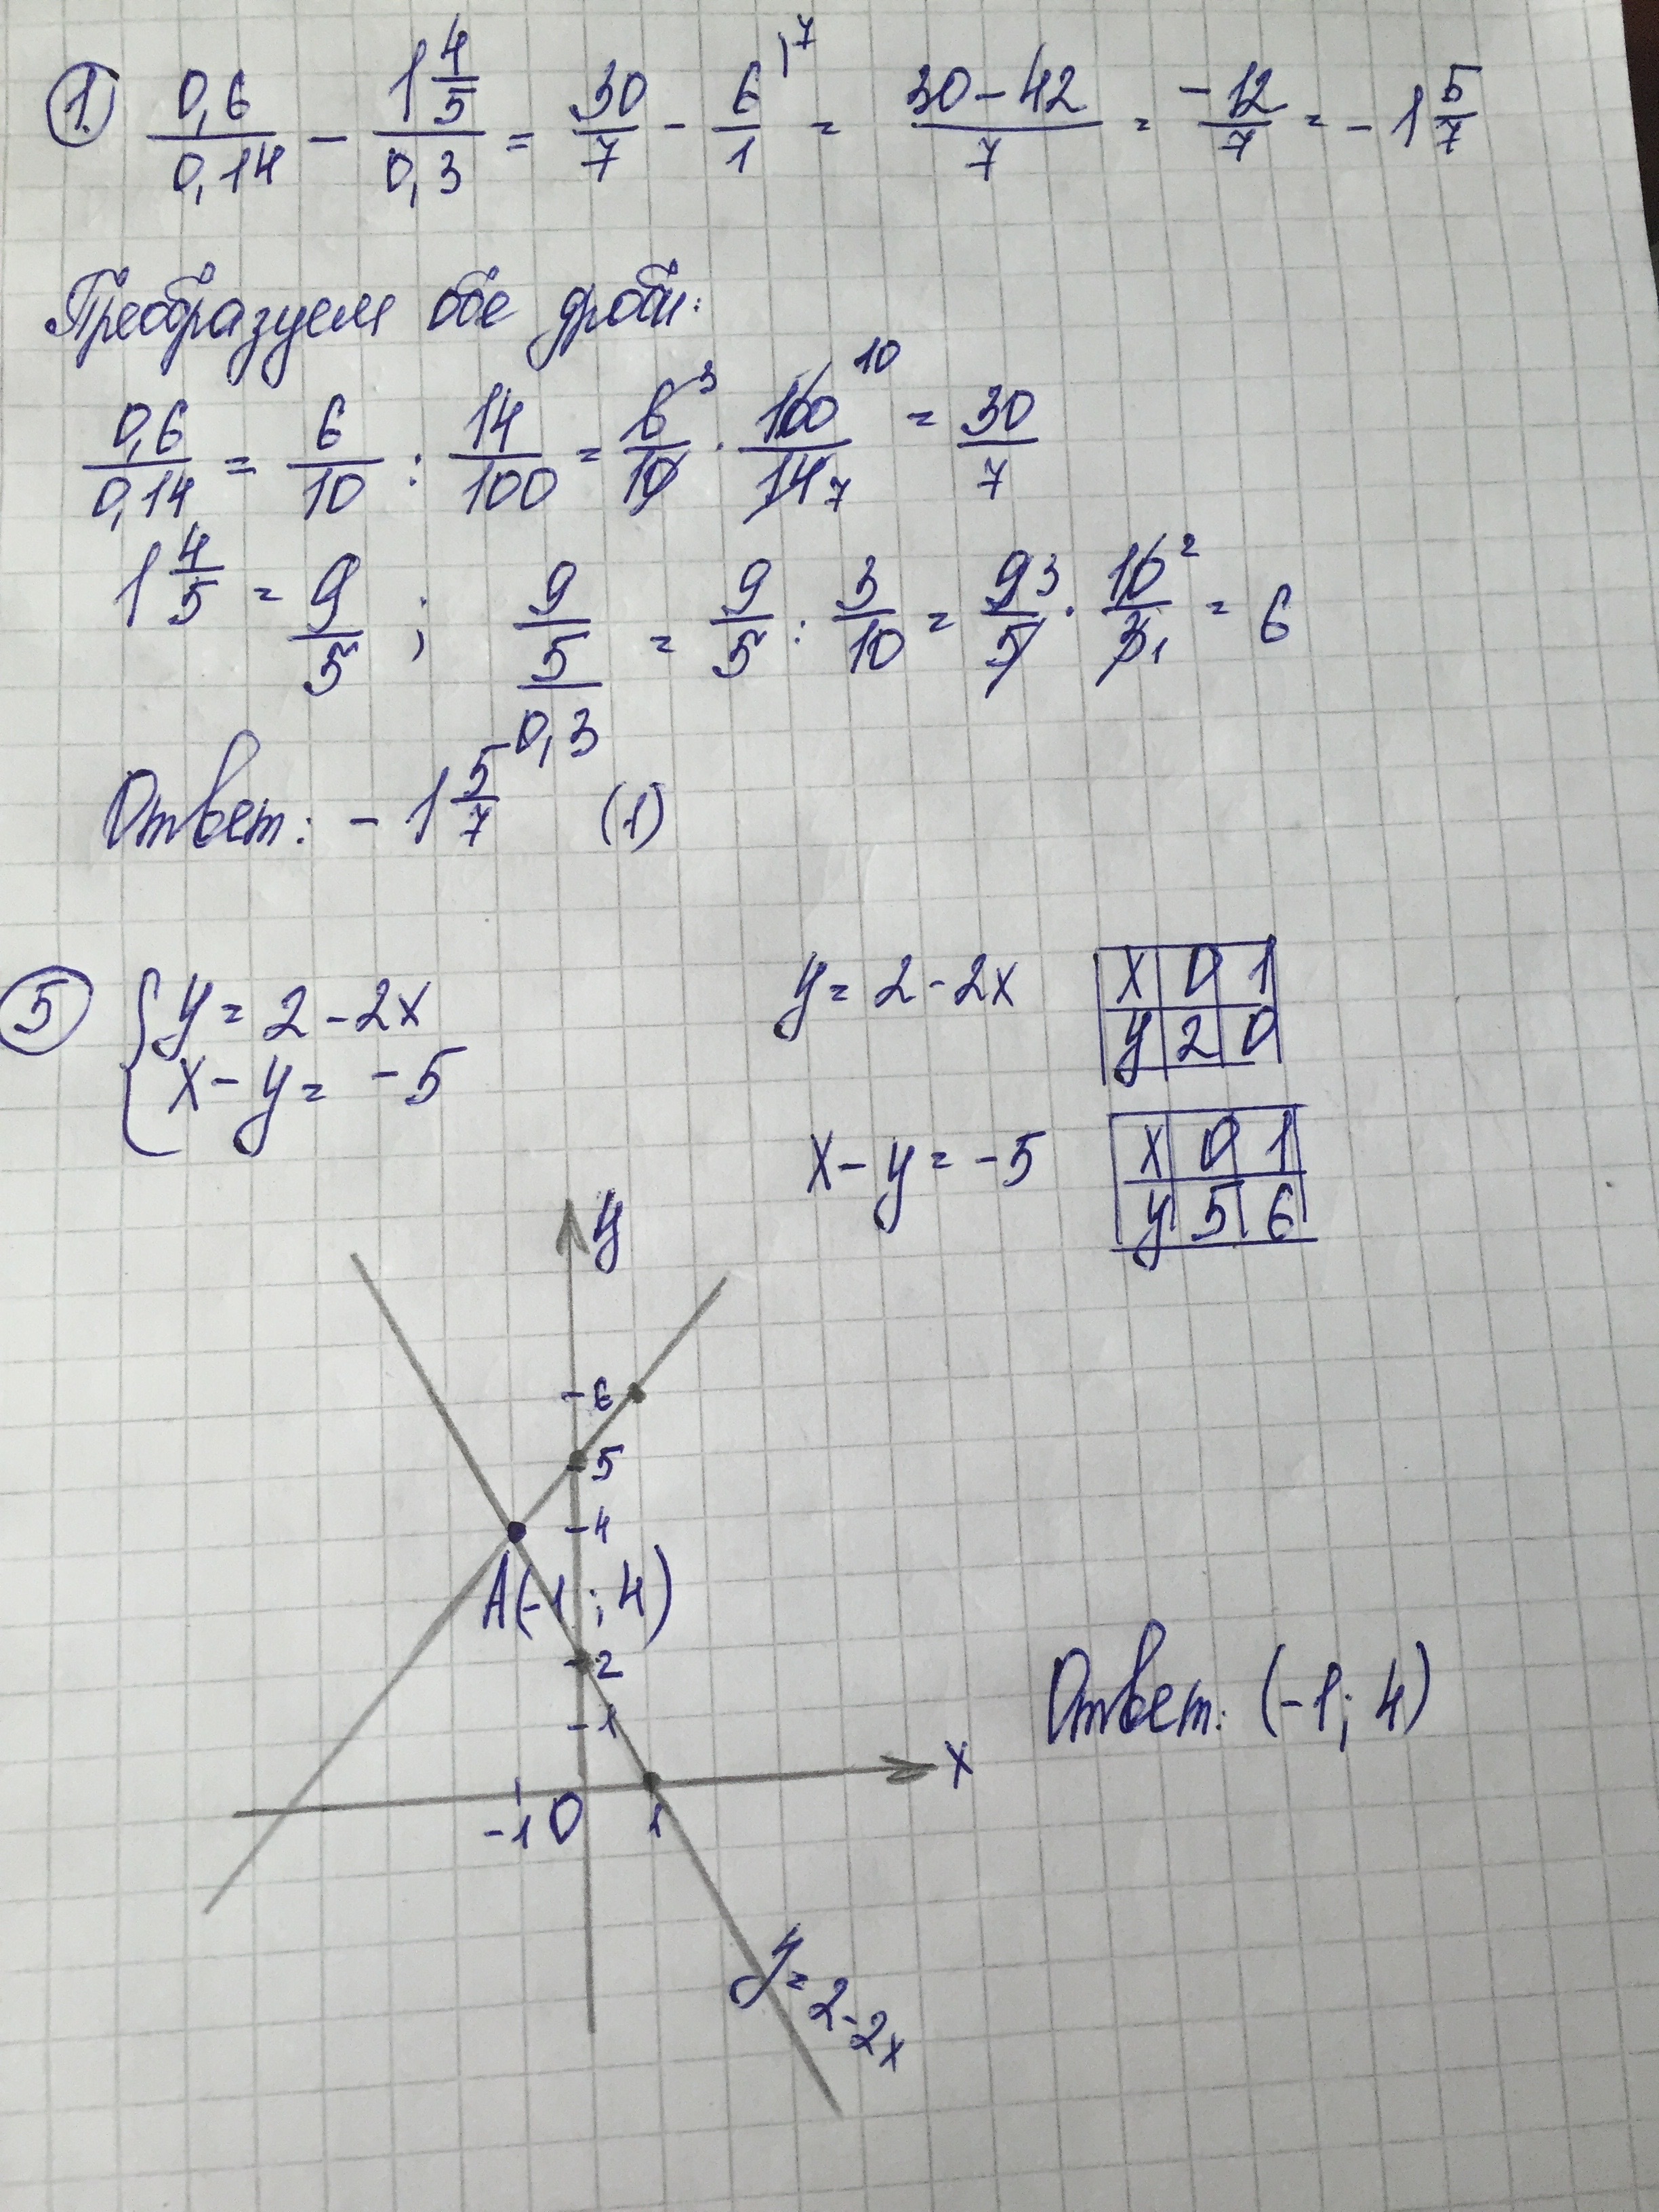 1. 0,6/0,14 - 1 4/5/0,3 = 30/7 - 6/1 |7 = 30-42/7 = -12/7 = -1 5/7
Преобразуем обе дроби:
0,6/0,14 = 6/10 : 14/100 = 6 3/10 · 100 10/14 7 = 30/7
1 4/5 = 9/5 ; 9/5/0,3 = 9/5 : 3/10 = 9 3/5 · 10 2/3 1 = 6
Ответ: -1 5/7 (1)
5 { y = 2 - 2x
x - y = -5
y = 2 - 2x
x 0 1
y 2 0
x - y = -5
x 0 1
y 5 6
y
6
5
4
A(-1; 4)
2
1
x
-1 0 1
y = 2-2x
Ответ: (-1; 4)